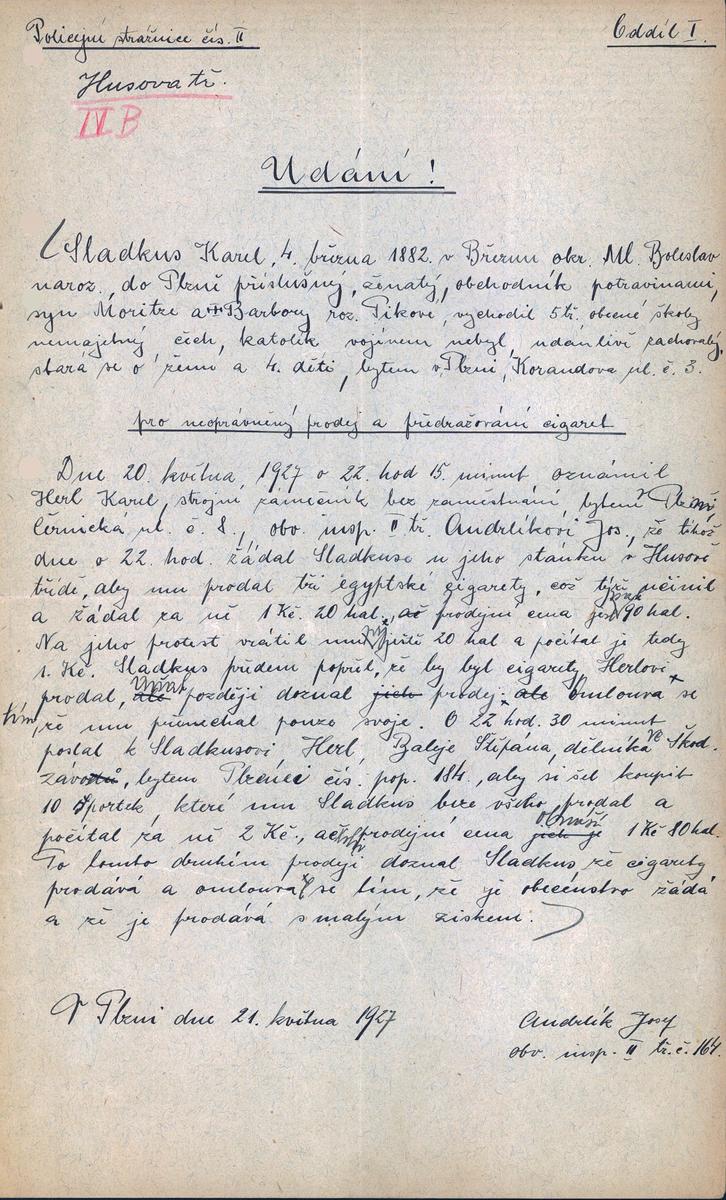 Policejní strážnice čís. II
Oddíl I.
Husova tř.
IV B
Udání!
(Sladkus Karel, 4. března 1882. v Březnu okr. Ml. Boleslav
naroz., do Plzně příslušný, ženatý, obchodník potravinami,
syn Moritze a Barbory roz. Pikove, vychodil 5 tř. obecné školy
nemajetný čech, katolík vojínem nebyl, udánlivě zachovalý,
stará se o ženu a 4. děti, bytem v Plzni, Korandova ul. č. 3.
pro neoprávněný prodej a předražování cigaret
Dne 20. května, 1927 o 22. hod 15. minut oznámil
Herl Karel, strojní zámečník bez zaměstnání, bytem v Plzni
Černická ul. č. 8., obv. insp. II tř. Andrlíkovi Jos., že téhož
dne o 22. hod. žádal Sladkuse u jeho stánku v Husově
třídě, aby mu prodal tři egyptské cigarety, což týž učinil
a žádal za ně 1 Kč. 20 hal., ač prodejní cena jest pak 90 hal.
Na jeho protest vrátil mu ještě 20 hal a počítal je tedy
1. Kč. Sladkus předem popřel, že by byl cigarety Herlovi
prodal, ale však později doznal jich prodej. ale Omlouvá se
tím, že mu přenechal pouze svoje. O 22 hod. 30 minut
poslal k Sladkusovi Herl, Baleje Štěpána, dělníka ve Škod.
závodů, bytem Plzenci čís. pop. 184., aby si šel koupit
10 Sportek, které mu Sladkus beze všeho prodal a
počítal za ně 2 Kč., ač prodejní cena jich je 1 Kč 80 hal.
Po tomto druhém prodeji doznal Sladkus, že cigarety
prodává a omlouval se tím, že je obecenstvo žádá
a že je prodává s malým ziskem.)
V Plzni dne 21. května 1927
Andrlík Josef
obv. insp. II tř. č. 164.